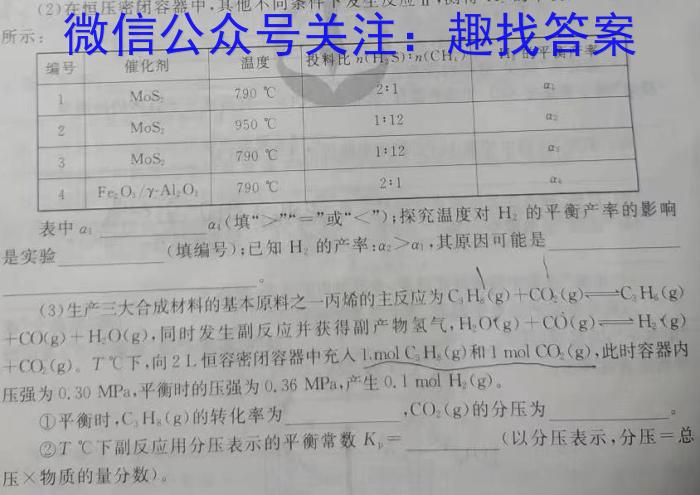 (2)在恒压密闭容器中,其他不同条件下发生反应
所示:
微信公众号关注：趣找答案
编号 催化剂 温度 投料比 n(H₂S):n(CH₄) H₂的平衡产率
1 MoS₂ 790 ℃ 2:1 α₁
2 MoS₂ 950 ℃ 1:12 α₂
3 MoS₂ 790 ℃ 1:12 α₃
4 Fe₂O₃/γ-Al₂O₃ 790 ℃ 2:1 α₄
表中α₁ ________ α₄(填“>”“=”或“<”);探究温度对 H₂ 的平衡产率的影响
是实验________(填编号);已知 H₂ 的产率:α₂>α₁,其原因可能是________
________。
(3)生产三大合成材料的基本原料之一丙烯的主反应为C₃H₈(g)+CO₂(g)⇌C₃H₆(g)
+CO(g)+H₂O(g),同时发生副反应并获得副产物氢气,H₂O(g)+CO(g)⇌H₂(g)
+CO₂(g)。T ℃下,向 2 L 恒容密闭容器中充入 1 mol C₃H₈(g)和 1 mol CO₂(g),此时容器内
压强为 0.30 MPa,平衡时的压强为 0.36 MPa,产生 0.1 mol H₂(g)。
①平衡时,C₃H₈(g)的转化率为________,CO₂(g)的分压为________。
②T ℃下副反应用分压表示的平衡常数 Kₚ=________(以分压表示,分压=总
压×物质的量分数)。